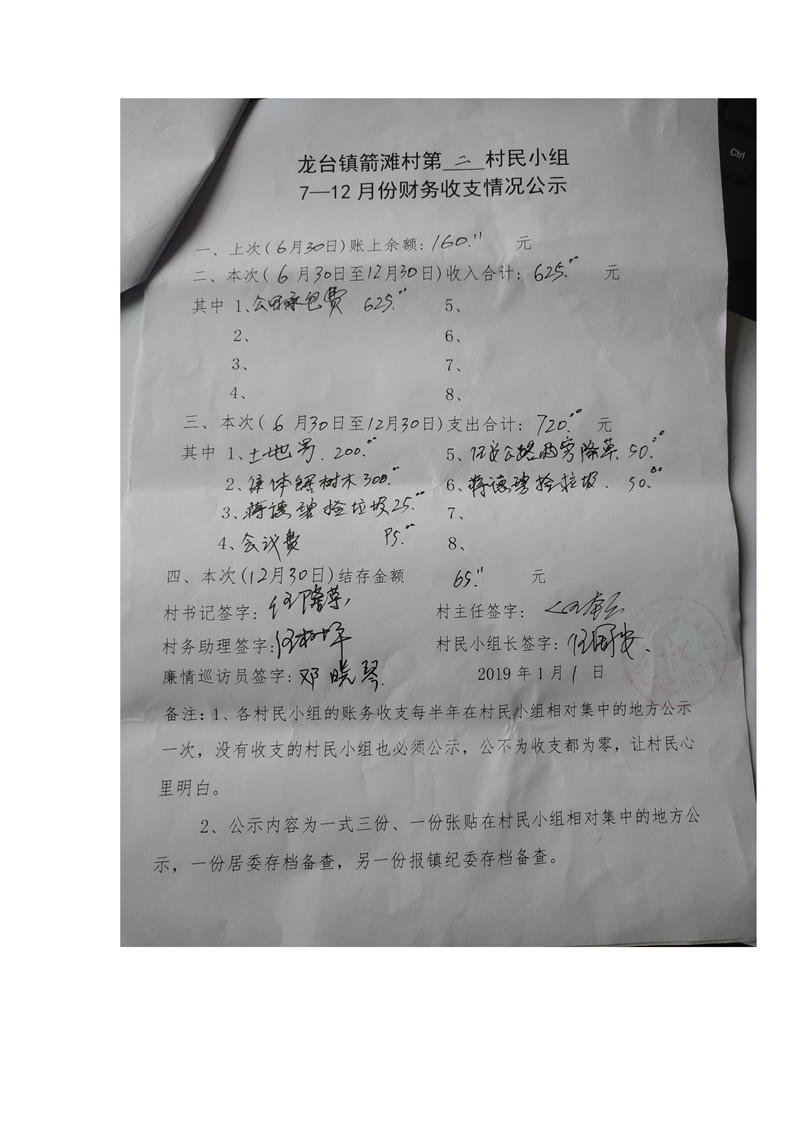 Ctrl
龙台镇箭滩村第 二 村民小组
7—12月份财务收支情况公示
一、上次(6月30日)账上余额:160.11 元
二、本次(6月30日至12月30日)收入合计:625.00 元
其中 1、公田承包费 625.00 5、
2、 6、
3、 7、
4、 8、
三、本次(6月30日至12月30日)支出合计:720.00 元
其中 1、土地 200.00 5、公路两旁除草 50.00
2、集体 树木300.00 6、蒋德碧捡垃圾 50.00
3、蒋德碧捡垃圾25.00 7、
4、会议费 95.00 8、
四、本次(12月30日)结存金额 65.11 元
村书记签字:任隆草 村主任签字:
村务助理签字: 村民小组长签字:任国安
廉情巡访员签字:邓晓琴 2019年1月1日
备注:1、各村民小组的账务收支每半年在村民小组相对集中的地方公示
一次,没有收支的村民小组也必须公示,公不为收支都为零,让村民心
里明白。
2、公示内容为一式三份、一份张贴在村民小组相对集中的地方公
示,一份居委存档备查,另一份报镇纪委存档备查。